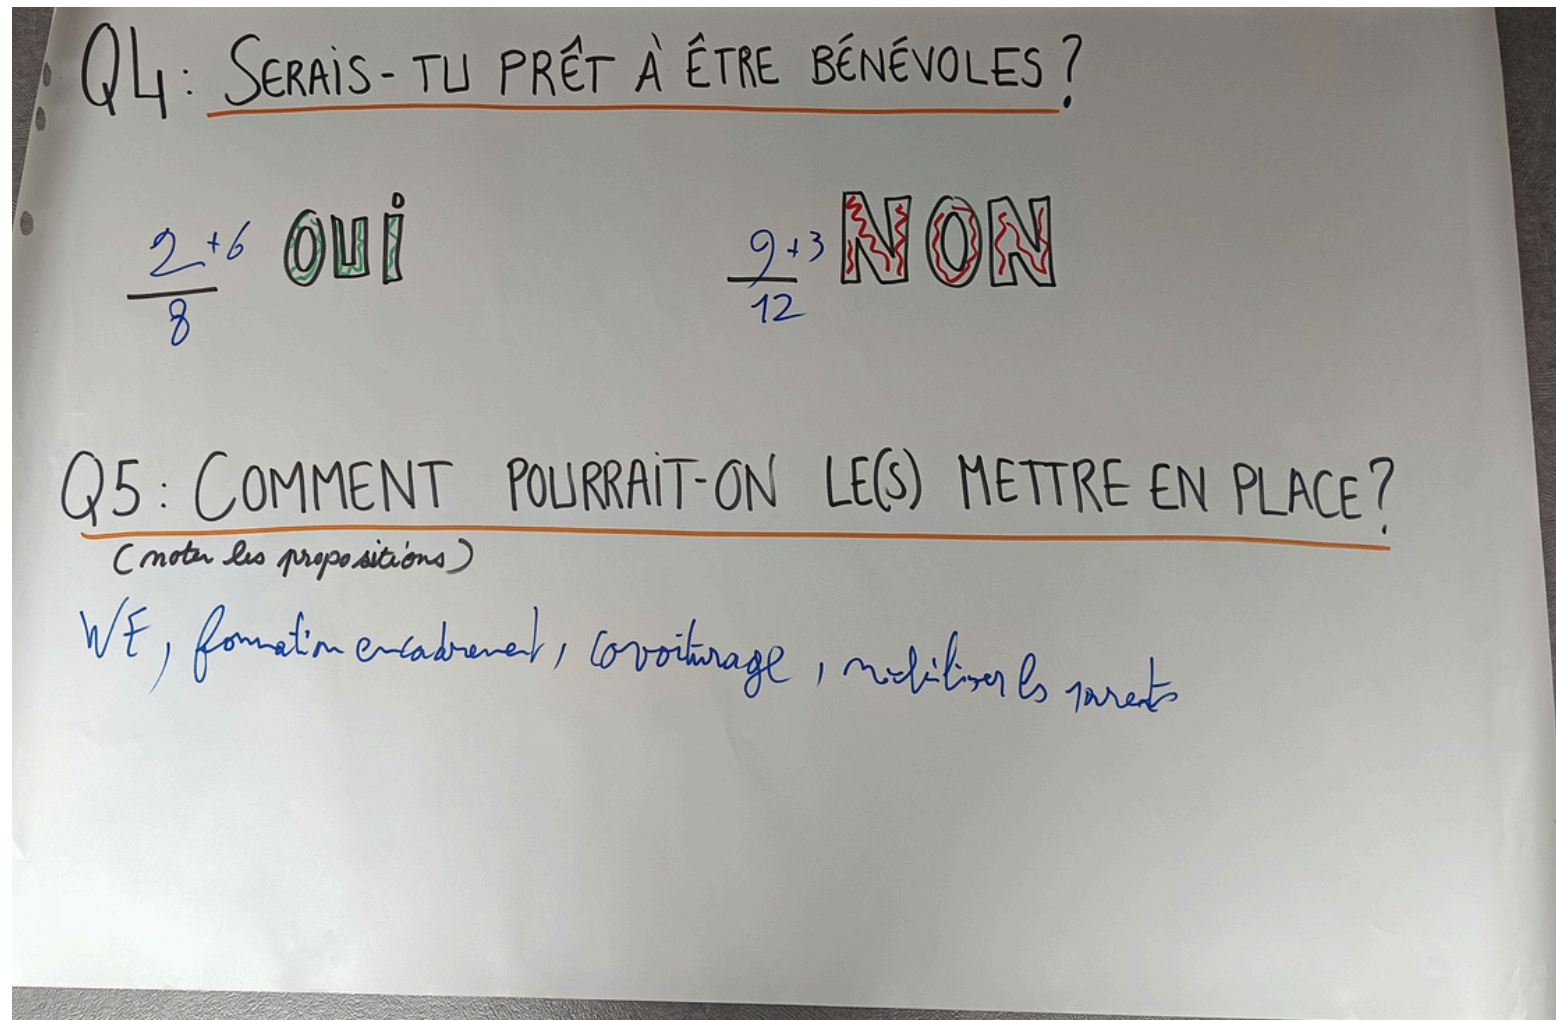 Q4: SERAIS-TU PRÊT À ÊTRE BÉNÉVOLES?
2+6 OUI 9+3 NON
8 12
Q5: COMMENT POURRAIT-ON LE(S) METTRE EN PLACE?
(noter les propositions)
WE, formation encadrement, covoiturage, mobiliser les parents